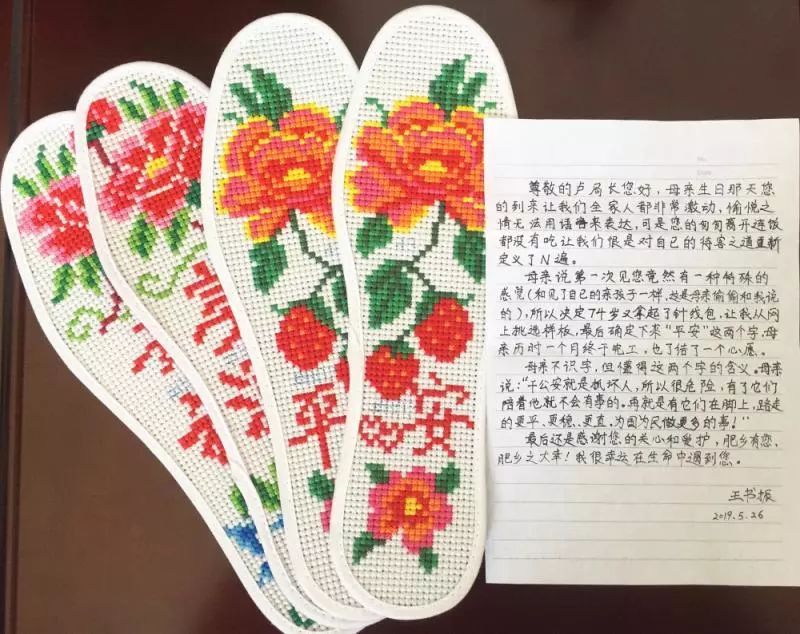 平
安
No.
Date
尊敬的卢局长您好，母亲生日那天您
的到来让我们全家人都非常激动，愉悦之
情无法用话语来表达，可是您的匆匆离开连饭
都没有吃让我们很是对自己的待客之道重新
定义了N遍。
母亲说第一次见您竟然有一种特殊的
感觉（和见了自己的亲孩子一样，这是母亲偷偷和我说
的），所以决定74岁又拿起了针线包，让我从网
上挑选样板，最后确定下来“平安”这两个字，母
亲历时一个月终于完工，也了结了一个心愿。
母亲不识字，但懂得这两个字的含义。母亲
说：“干公安就是抓坏人，所以很危险，有了它们
陪着他就不会有事的。再就是有它们在脚上，路走
的更平、更稳、更直，为国为民做更多的事！”
最后还是感谢您的关心和爱护，肥乡有您，
肥乡之大幸！我很幸运在生命中遇到您。
王书振
2019.5.26